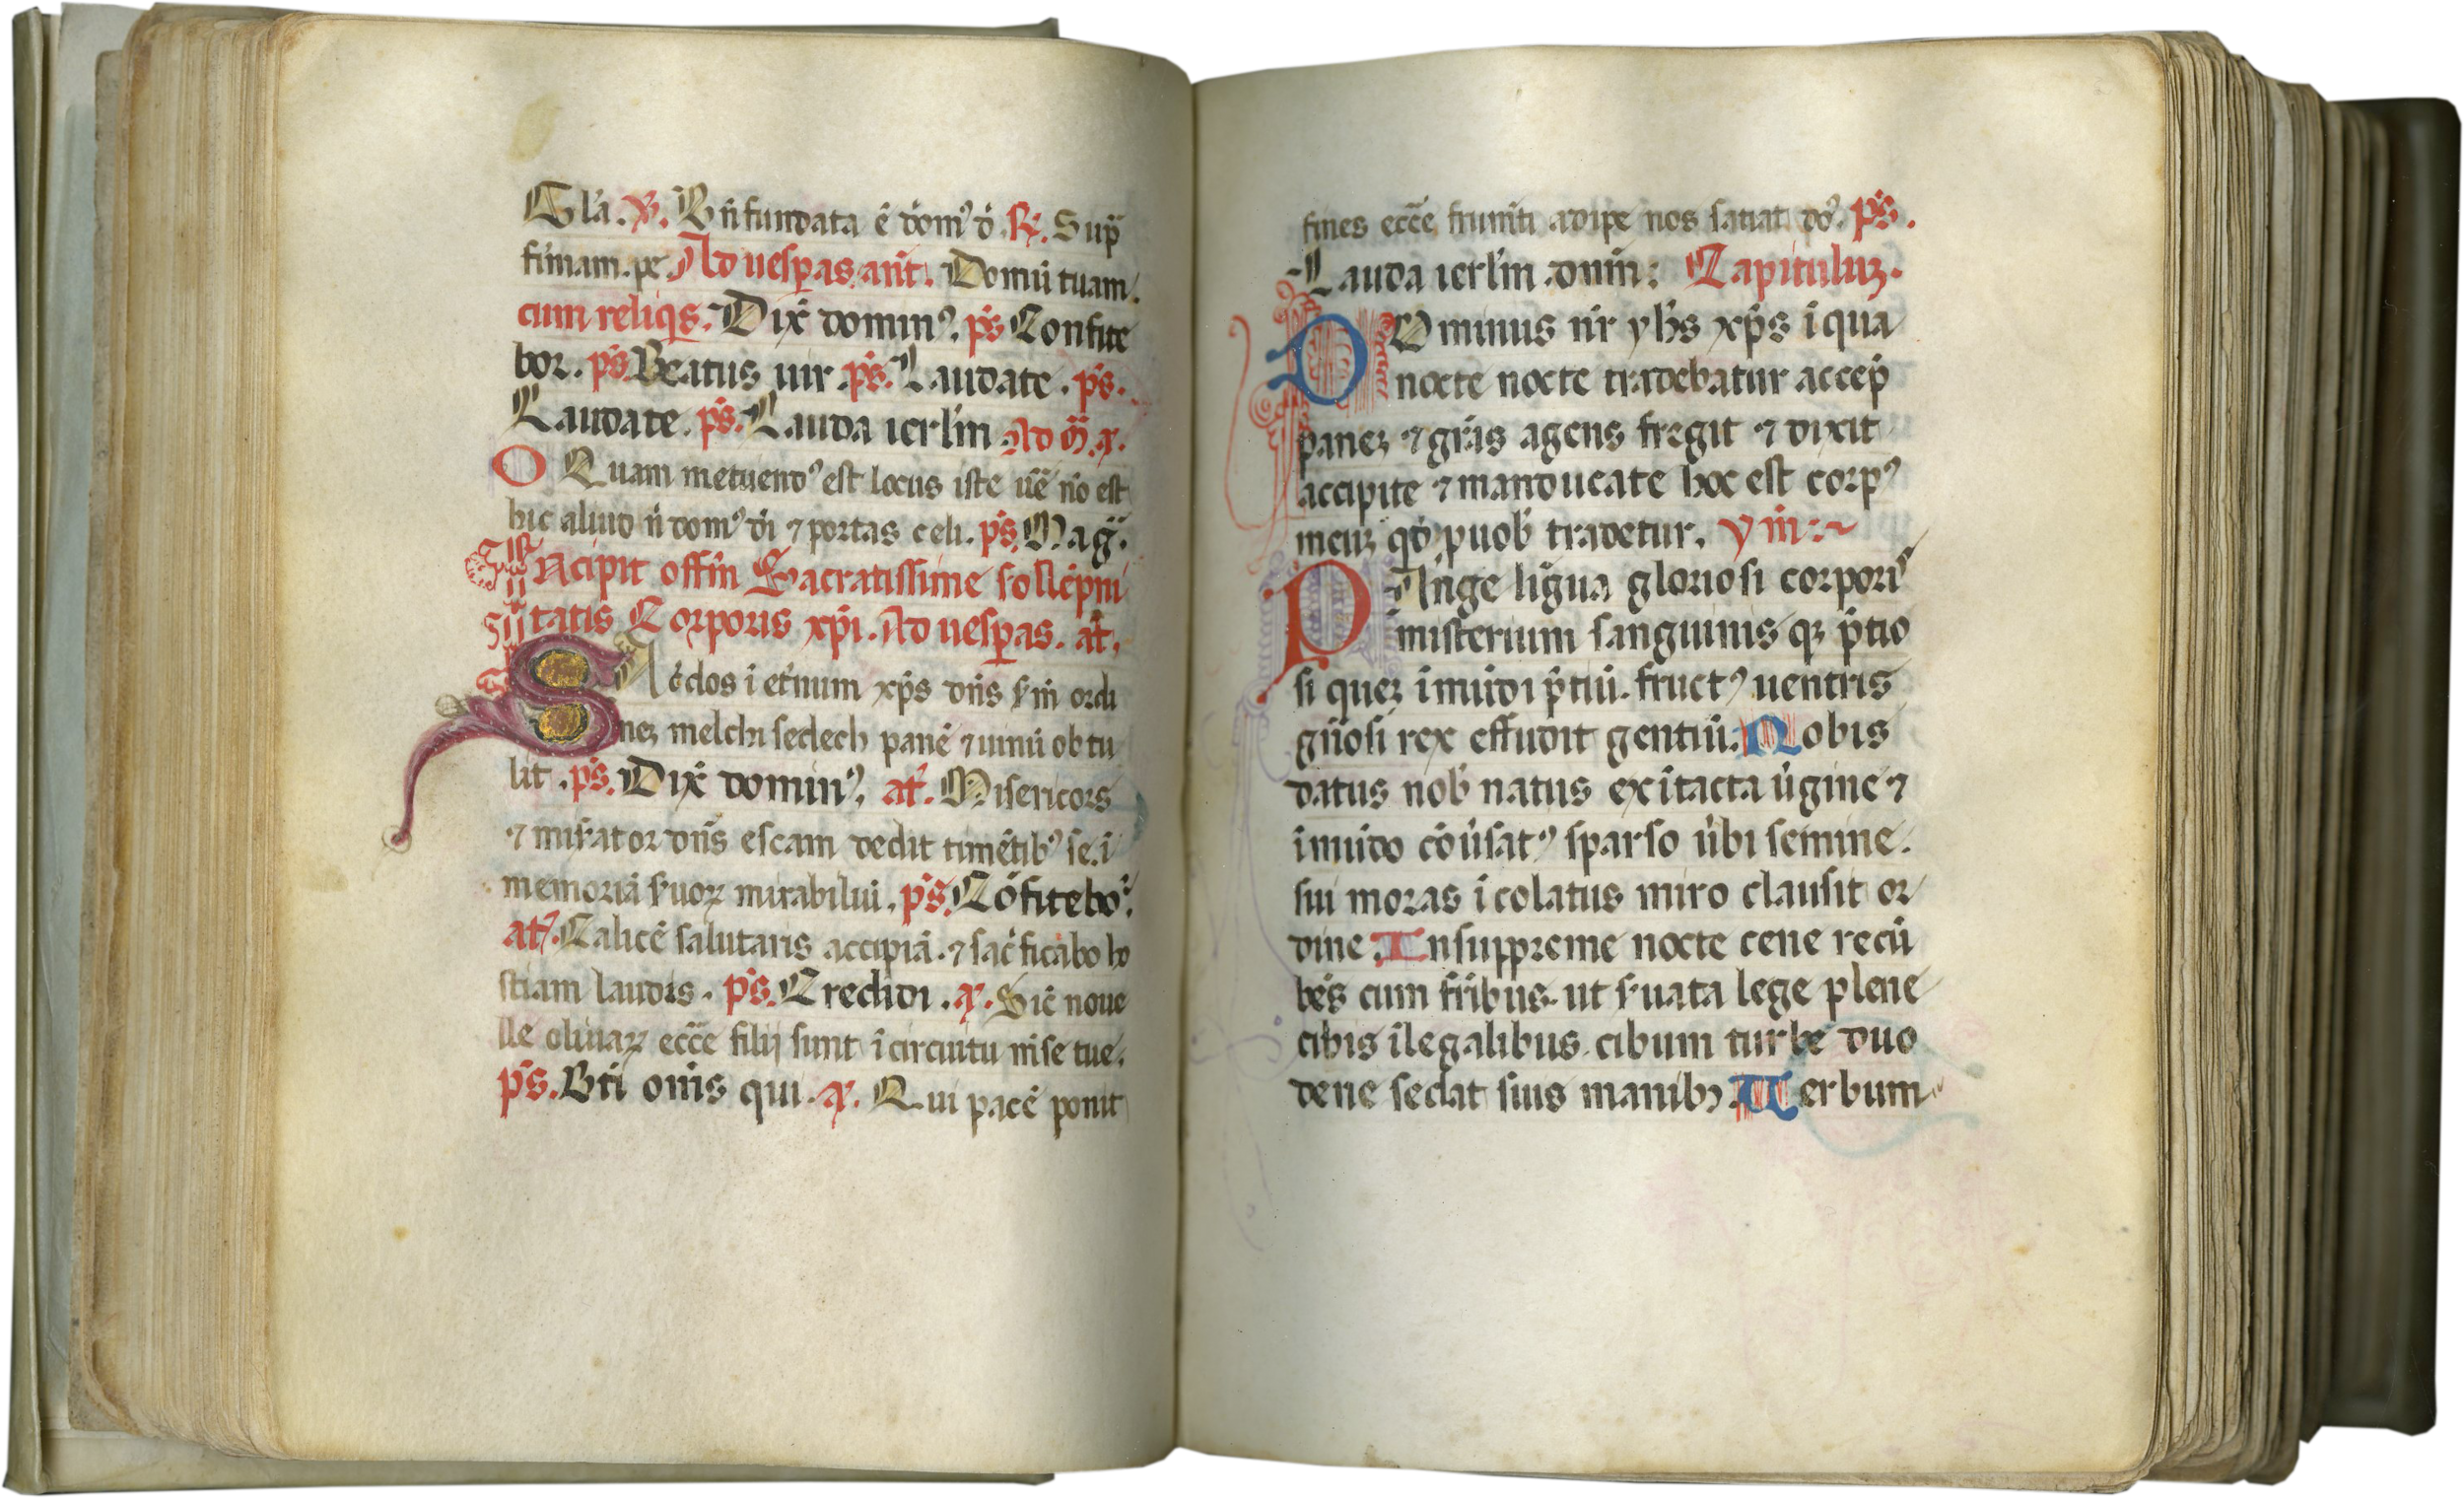 Gl'a. ℣. Bn̄ fundata ē dom⁹ d̄. ℟. Sup̄
firmam. pe. Ad uesꝑas. ant̄. Domū tuam.
cum reliq̄s. Dix̄ domin⁹. ps̄ Confite
bor. ps̄. Beatus uir. ps̄. Laudate. ps̄.
Laudate. ps̄. Lauda ierl'm. Ad m̄. a.
O Quam metuend⁹ est locus iste uē nō est
hic aliud n̄ dom⁹ dī ⁊ portas celi. ps̄. Mag̅.
Incipit offm̄ Sacratissime sollēpni
tatis Corporis xp̄i. Ad uesꝑas. at̄.
Sac̄dos ī et̄num xp̄s dn̄s s'm̄ ordi
neꝫ melchisedech panē ⁊ uinū obtu
lit. ps̄. Dix̄ domin⁹. at̄. Misericors
⁊ mis'ator dn̄s escam dedit timētib⁹ se. ī
memoriā s'uoꝝ mirabiliū. ps̄. Cōfitebo2.
at̄. Calicē salutaris accipiā. ⁊ sac̄ficabo ho
stiam laudis. ps̄. Credidi. a. Sic̄ noue
lle oliuaꝝ ecc̄e filij sunt ī circuitu mēse tue.
ps̄. Bt̄i om̄s qui. a. Qui pacē ponit
fines ecc̄e frumēti adipe nos satiat do⁹. ps̄.
Lauda ierl'm. dnm̄: Capituluꝫ.
DOminus nr̄ yhs̄ xp̄s ī qua
nocte nocte tradebatur accep̄
paneꝫ ⁊ gr̄as agens fregit ⁊ dixit
accipite ⁊ manducate hoc est corp⁹
meuꝫ qd̄ p uob̄ tradetur. ym̄:~
PAnge līgua gloriosi corpori⁹
misterium sanguinis qꝫ p̄tio
si queꝫ ī mūdi p̄tiū. fruct⁹ uentris
gn̄osi rex effudit gentiū. Nobis
datus nob̄ natus ex ītacta ūgine ⁊
ī mūdo cōūsat⁹ sparso ūbi semine.
sui moras īcolatus miro clausit or
dine. In suppreme nocte cene recū
bēs cum fr̄ibus. ut s'uata lege plene
cibis ī legalibus. cibum turbe duo
dene se dat suis manibꝫ. Uerbum